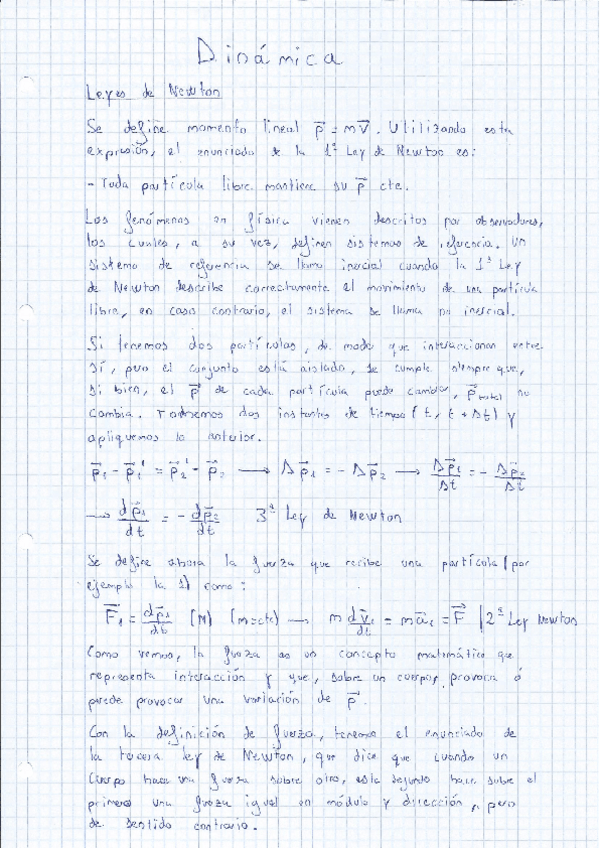 Dinámica
Leyes de Newton
Se define momento lineal p⃗ = mv⃗. Utilizando esta
expresión, el enunciado de la 1ª Ley de Newton es:
- Toda partícula libre mantiene su p⃗ cte.
Los fenómenos en física vienen descritos por observadores,
los cuales, a su vez, definen sistemas de referencia. Un
sistema de referencia se llama inercial cuando la 1ª Ley
de Newton describe correctamente el movimiento de una partícula
libre, en caso contrario, el sistema se llama no inercial.
Si tenemos dos partículas, de modo que interaccionan entre
sí, pero el conjunto está aislado, se cumple siempre que,
si bien, el p⃗ de cada partícula puede cambiar, p⃗total no
cambia. Tomemos dos instantes de tiempo (t, t + Δt) y
apliquemos lo anterior.
p⃗₁ - p⃗₁' = p⃗₂' - p⃗₂ → Δp⃗₁ = - Δp⃗₂ → Δp⃗₁/Δt = - Δp⃗₂/Δt
→ dp⃗₁/dt = - dp⃗₂/dt 3ª Ley de Newton
Se define ahora la fuerza que recibe una partícula (por
ejemplo la 1) como:
F⃗₁ = dp⃗₁/dt [N] (m=cte) → m dv⃗₁/dt = ma⃗₁ = F⃗ | 2ª Ley Newton
Como vemos, la fuerza es un concepto matemático que
representa interacción y que, sobre un cuerpo, provoca ó
puede provocar una variación de p⃗.
Con la definición de fuerza, tenemos el enunciado de
la tercera ley de Newton, que dice que cuando un
cuerpo hace una fuerza sobre otro, este segundo hace sobre el
primero una fuerza igual en módulo y dirección, pero
de sentido contrario.